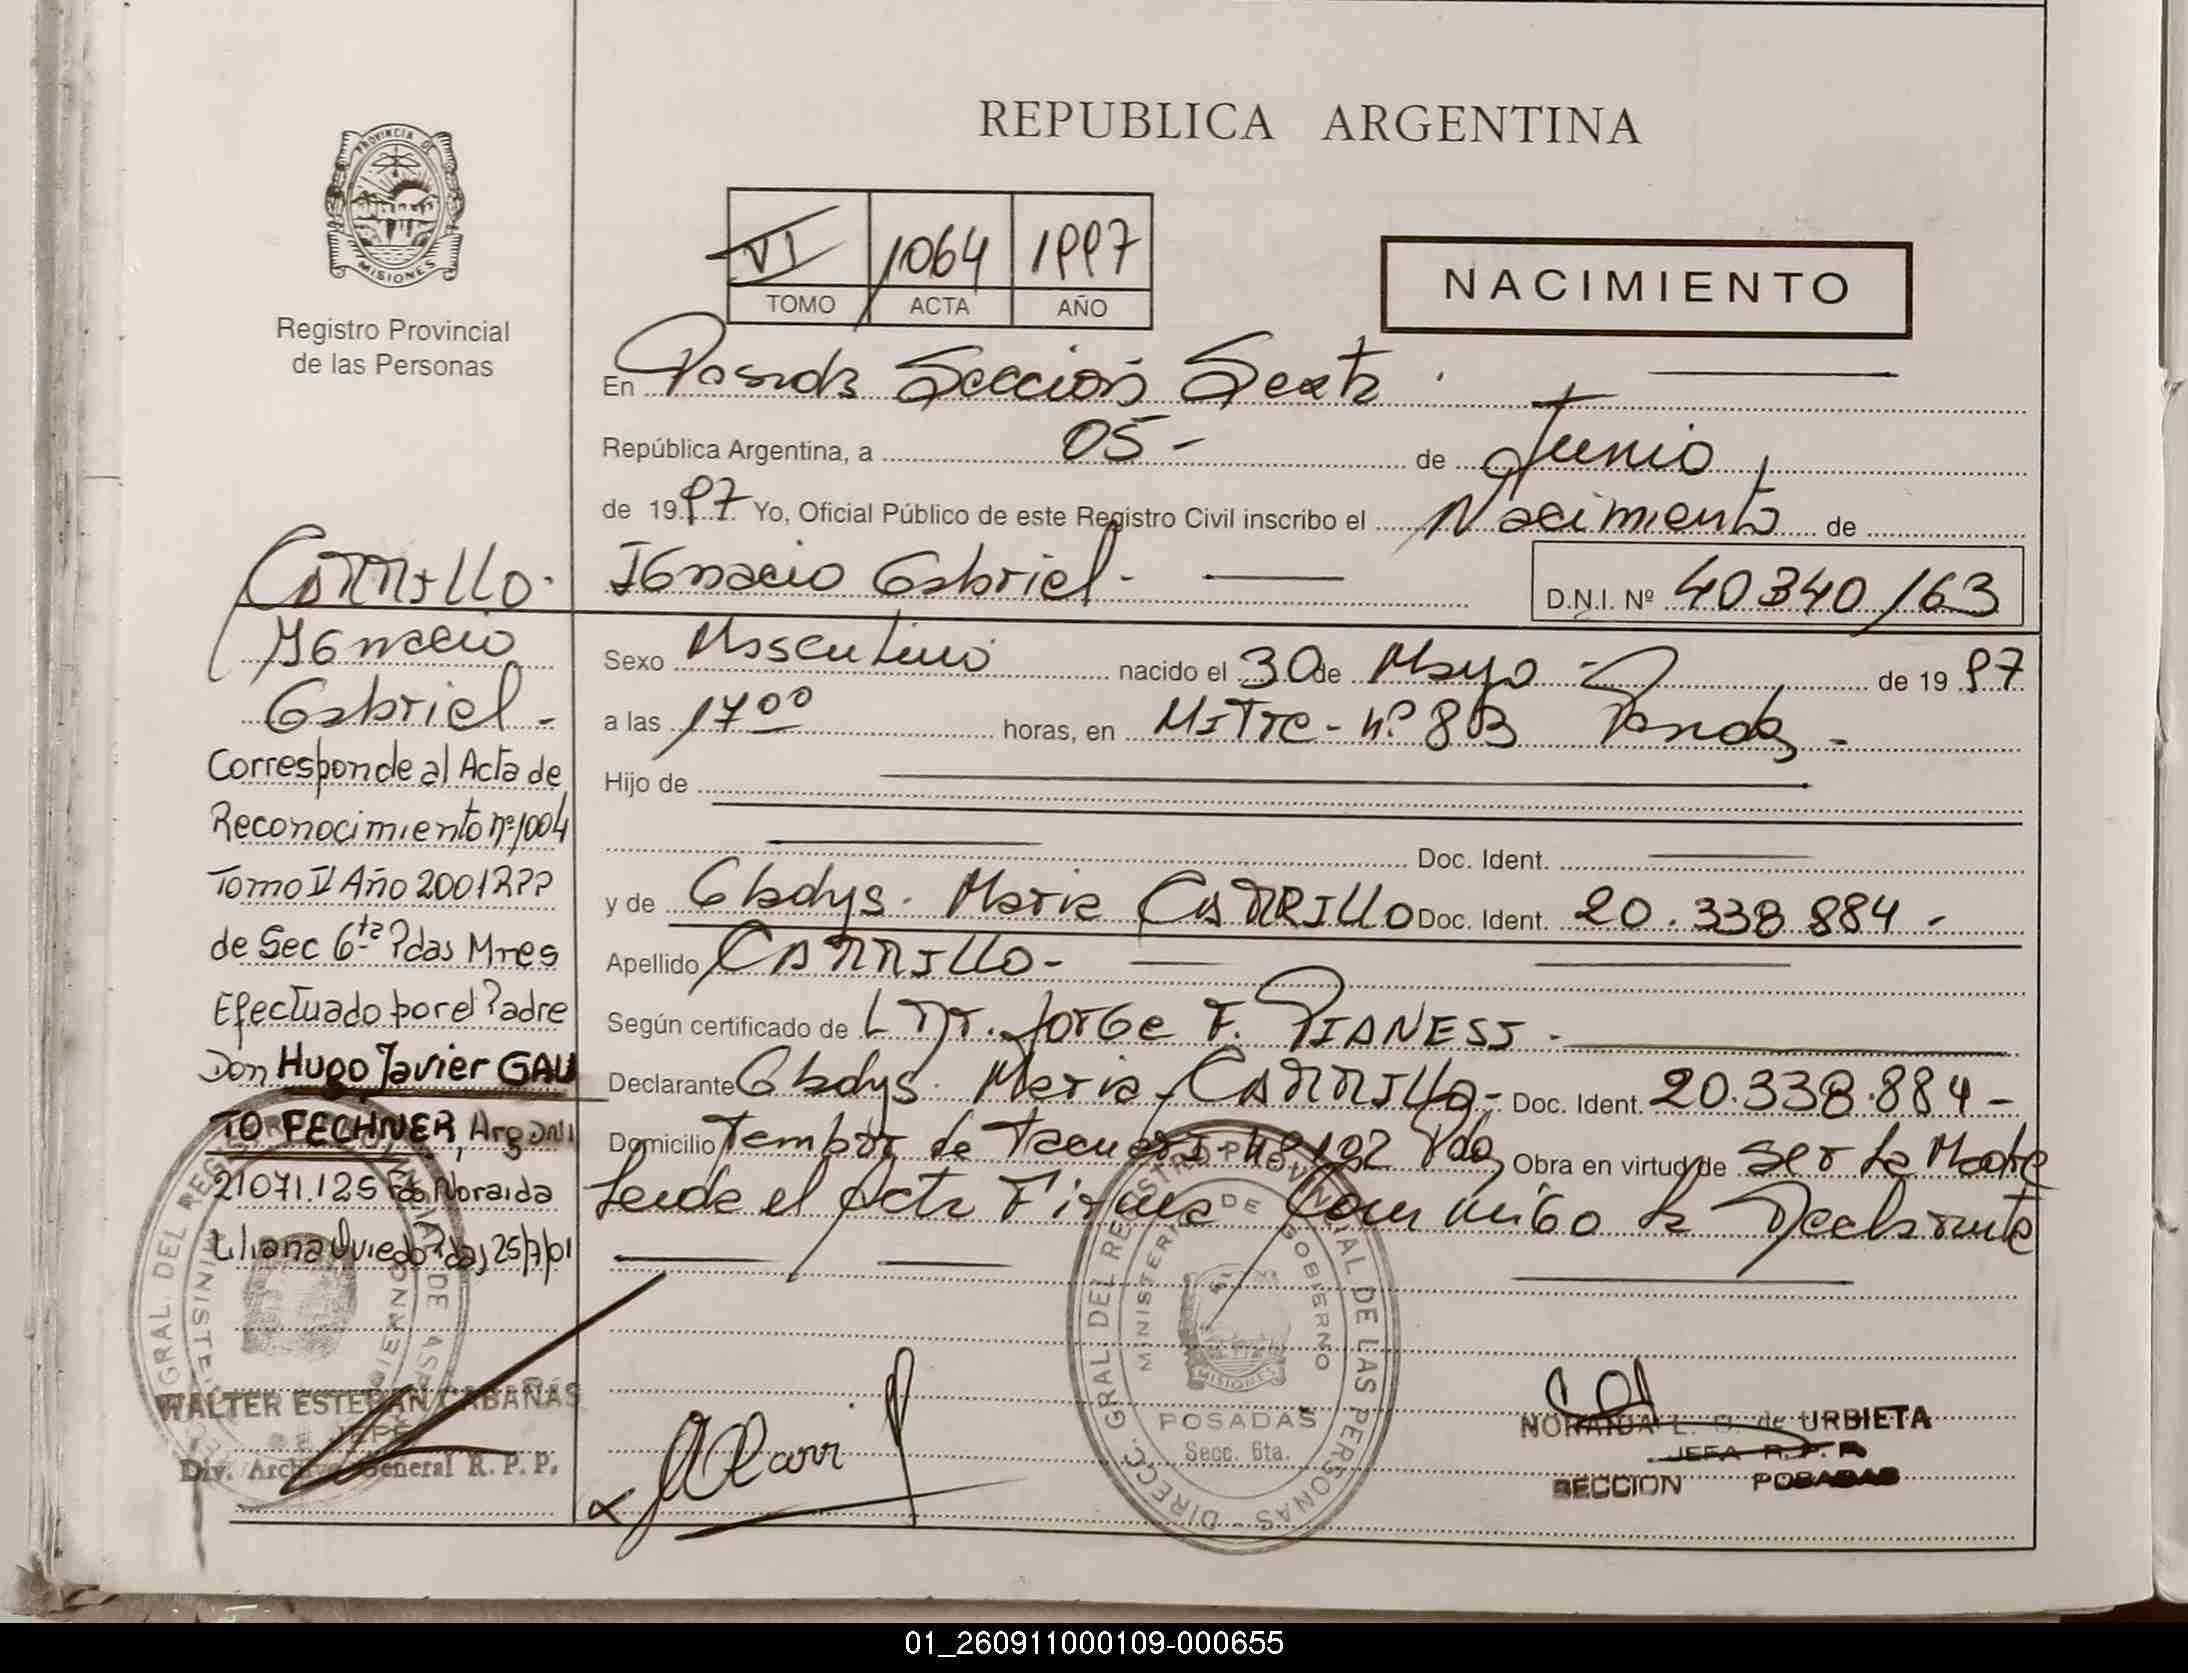 REPUBLICA ARGENTINA
PROVINCIA DE
MISIONES
Registro Provincial
de las Personas
VI 1064 1997
TOMO ACTA AÑO
NACIMIENTO
En Posadas Sección Sexta
República Argentina, a 05 - de Junio
de 1997 Yo, Oficial Público de este Registro Civil inscribo el Nacimiento de
IGnacio Gabriel -
D.N.I. Nº 40340163
Sexo Masculino nacido el 30 de Mayo - de 1997
a las 17⁰⁰ horas, en MiTre - nº 803 Posadas -
Hijo de
Doc. Ident.
y de Gladys Maria CARRILLO Doc. Ident. 20.338.884 -
Apellido CARRILLO -
Según certificado de Jorge F. PIANESI -
Declarante Gladys Maria CARRILLO - Doc. Ident. 20.338.884 -
Domicilio Tambor de Tacuari nº 192 Pdas Obra en virtud de ser la Madre
Leida el Acta Firma Conmigo la Declarante
CARRILLO -
IGnacio
Gabriel -
Corresponde al Acta de
Reconocimiento nº 1004
Tomo V Año 2001 RPP
de Sec 6ta Pdas Mnes
Efectuado por el Padre
Don Hugo Javier GAU
TO FECHNER, Arg DNI
21071.125 Fdo Noraida
Liliana Oviedo Pdas 25/7/01
WALTER ESTEBAN CABAÑAS
JEFE
Div. Archivo General R. P. P.
DIRECC. GRAL. DEL REGISTRO PROVINCIAL DE LAS PERSONAS
MINISTERIO DE GOBIERNO
MISIONES
POSADAS
Secc. 6ta.
NORAIDA L. O. de URBIETA
JEFA R.P.P.
SECCION POSADAS
01_260911000109-000655